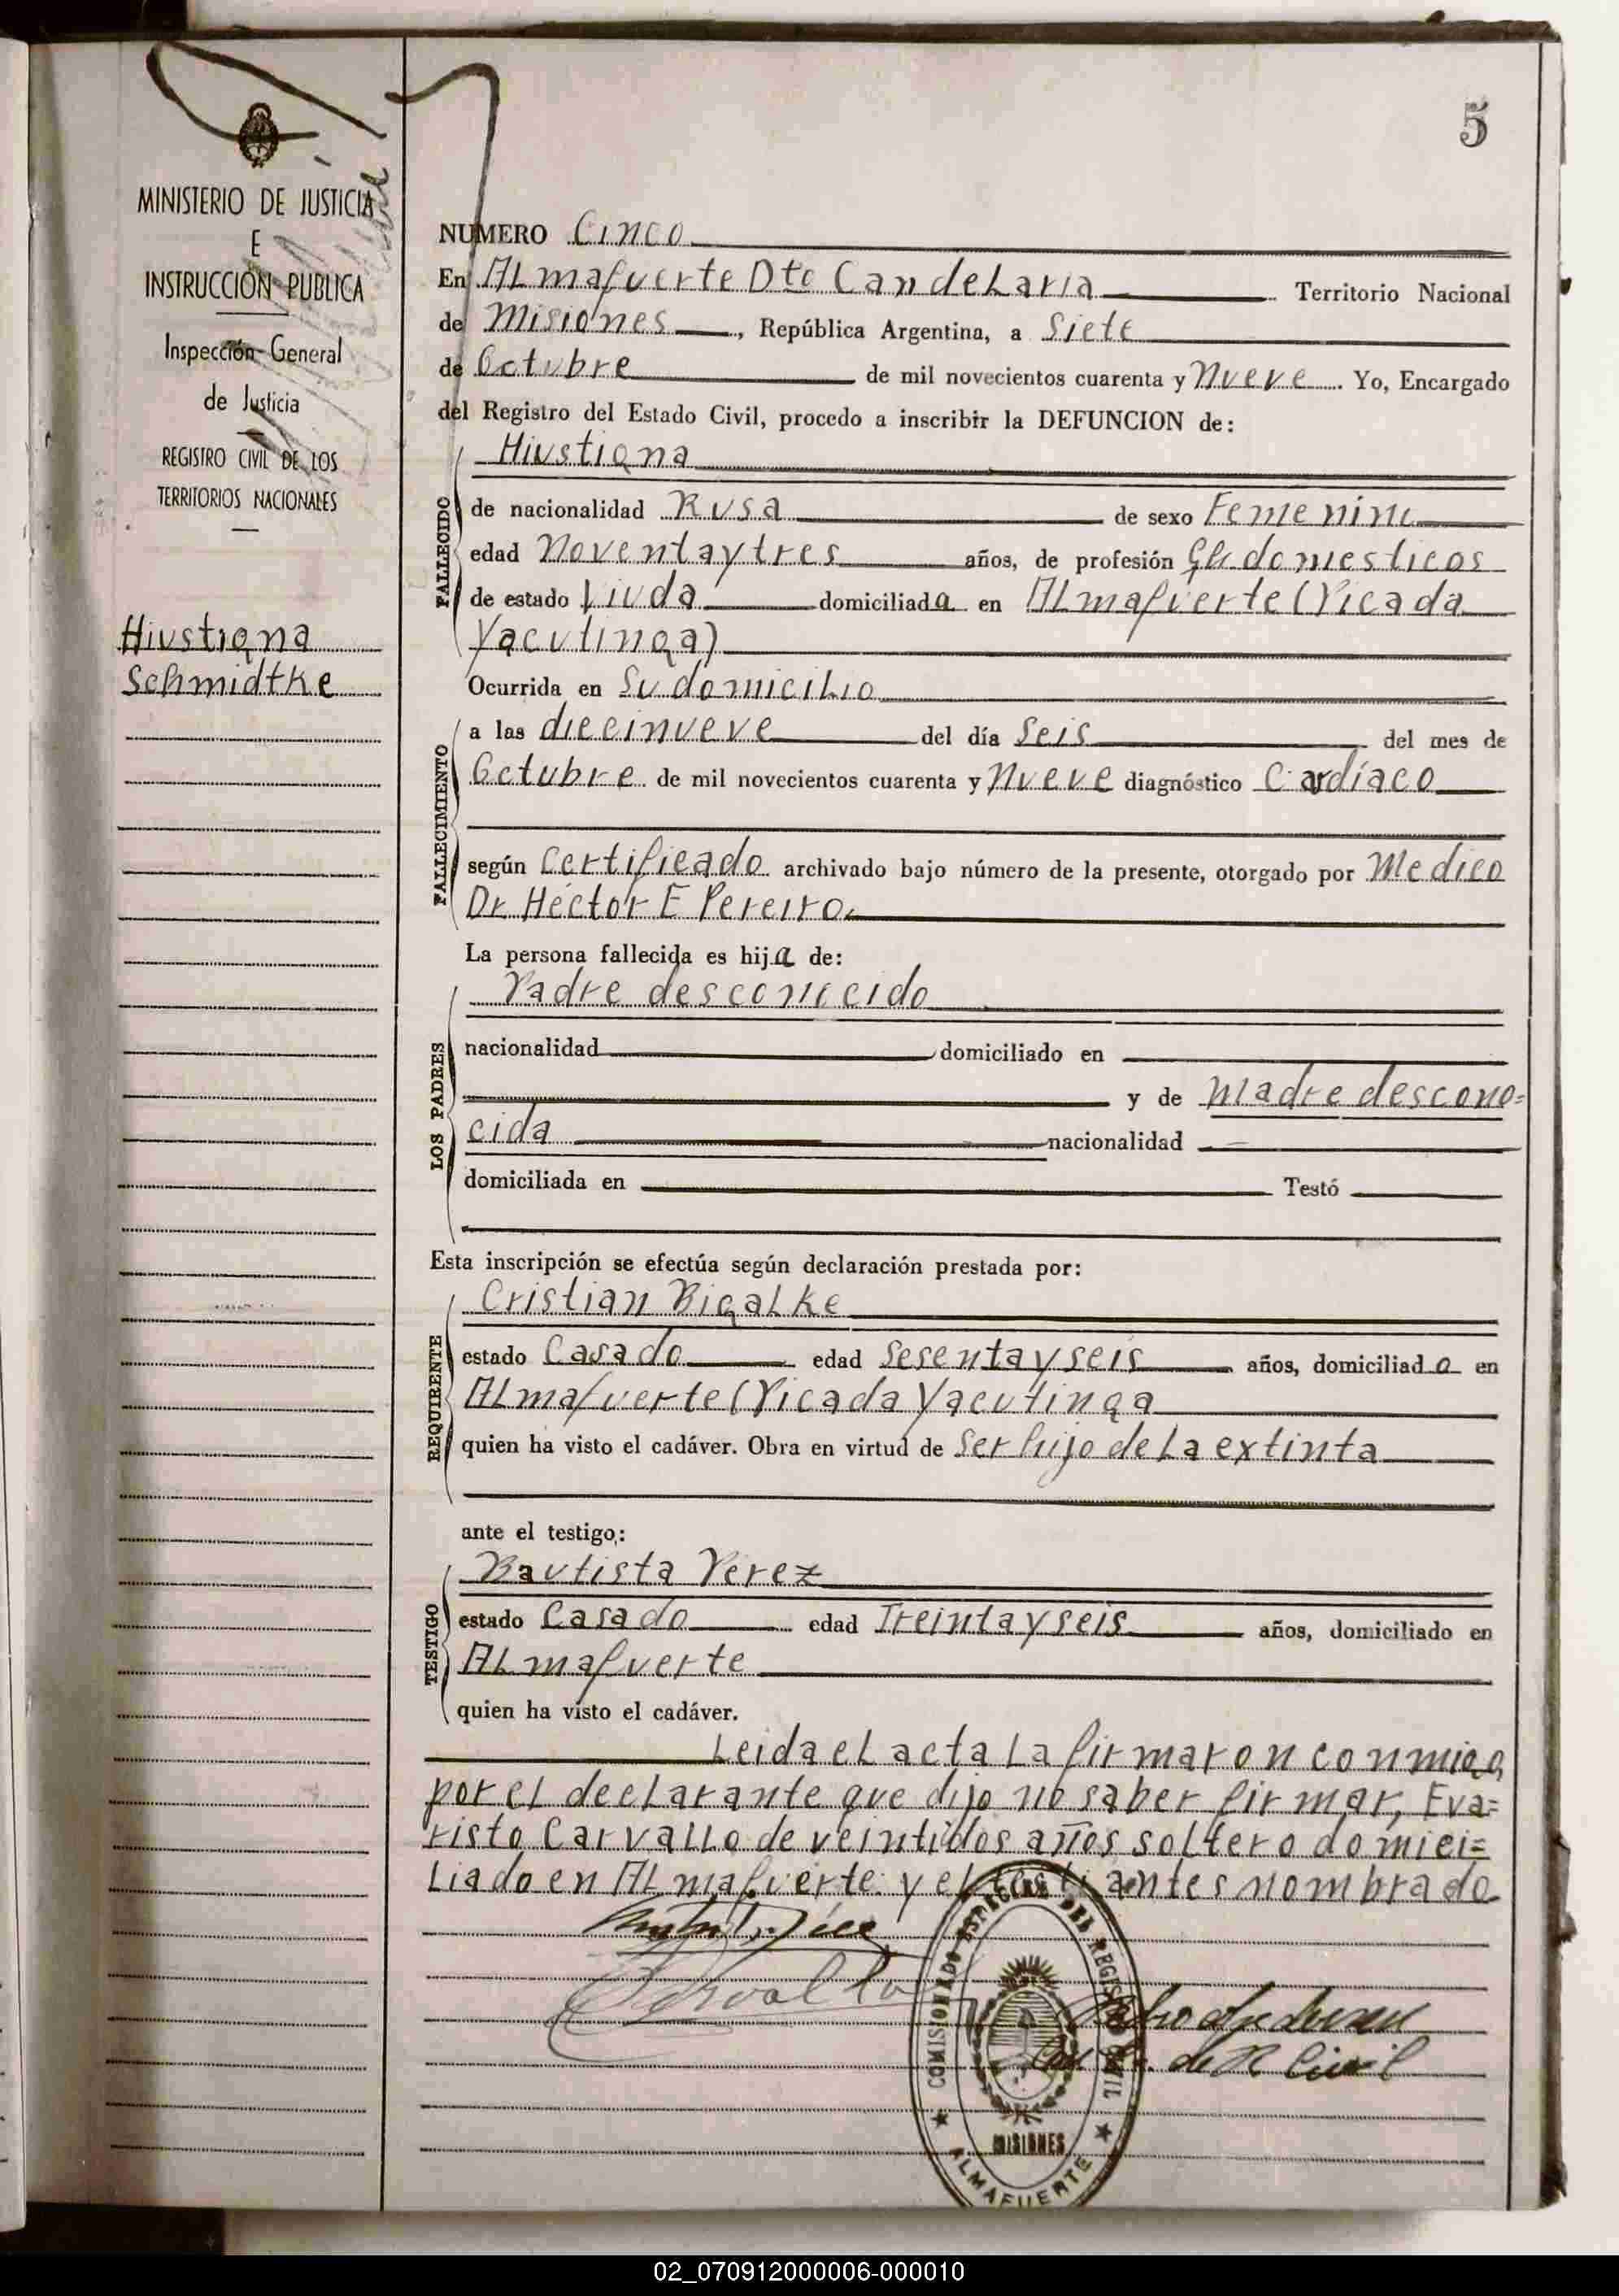 5
MINISTERIO DE JUSTICIA
E
INSTRUCCIÓN PUBLICA
Inspección General
de Justicia
REGISTRO CIVIL DE LOS
TERRITORIOS NACIONALES
Hiustiana
Schmidtke
NUMERO Cinco
En ALmafuerte Dto CandeLaria Territorio Nacional
de Misiones, República Argentina, a Siete
de Octubre de mil novecientos cuarenta y Nueve. Yo, Encargado
del Registro del Estado Civil, procedo a inscribir la DEFUNCION de:
Hiustiana
FALLECIDO
de nacionalidad Rusa de sexo Femenino
edad Noventaytres años, de profesión domesticos
de estado Viuda domiciliada en ALmafuerte (Picada
Yacutinga)
Ocurrida en Su domiciLio
FALLECIMIENTO
a las diecinueve del día Seis del mes de
Octubre de mil novecientos cuarenta y Nueve diagnóstico Cardíaco
según Certificado archivado bajo número de la presente, otorgado por Medico
Dr. Héctor E Pereiro.
La persona fallecida es hija de:
Padre desconocido
LOS PADRES
nacionalidad domiciliado en
y de Madre descono=
cida nacionalidad
domiciliada en Testó
Esta inscripción se efectúa según declaración prestada por:
Cristian BigaLke
REQUIRENTE
estado Casado edad Sesentayseis años, domiciliado en
ALmafuerte (Picada Yacutinga
quien ha visto el cadáver. Obra en virtud de Ser hijo de La extinta
ante el testigo:
Bautista Perez
TESTIGO
estado Casado edad Treintayseis años, domiciliado en
ALmafuerte
quien ha visto el cadáver.
Leida eL acta La firmaron conmigo
por eL decLarante que dijo no saber firmar, Eva=
risto CarvaLLo de veintidos años soltero domici=
Liado en ALmafuerte y el testi antes nombrado
COMISIONADO ESPECIAL DEL REGISTRO CIVIL
MISIONES
ALMAFUERTE
de R Civil
02_070912000006-000010